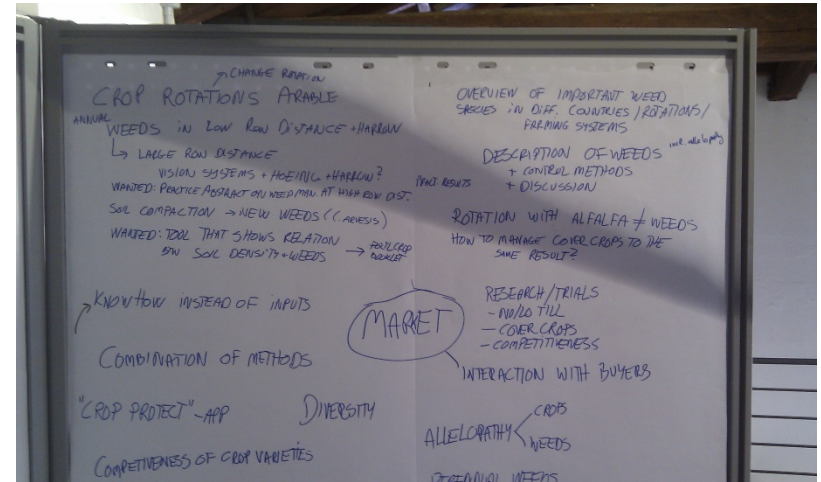 CHANGE ROTATION
CROP ROTATIONS ARABLE
ANNUAL
WEEDS IN LOW ROW DISTANCE + HARROW
LARGE ROW DISTANCE
VISION SYSTEMS + HOEING + HARROW?
WANTED: PRACTICE ABSTRACT ON WEED MAN. AT HIGH ROW DIST.
SOIL COMPACTION → NEW WEEDS (C. ARVESIS)
WANTED: TOOL THAT SHOWS RELATION
BTW SOIL DENSITY + WEEDS →
BOOKLET
KNOW HOW INSTEAD OF INPUTS
COMBINATION OF METHODS
"CROP PROTECT" - APP
DIVERSITY
COMPETIVENESS OF CROP VARIETIES
MARKET
OVERVIEW OF IMPORTANT WEED
SPECIES IN DIFF. COUNTRIES / ROTATIONS /
FARMING SYSTEMS
DESCRIPTION OF WEEDS incl. allelopathy
+ CONTROL METHODS
PRACT. RESULTS + DISCUSSION
ROTATION WITH ALFALFA ≠ WEEDS
HOW TO MANAGE COVER CROPS TO THE
SAME RESULT?
RESEARCH / TRIALS
- NO/LO TILL
- COVER CROPS
- COMPETITIVENESS
INTERACTION WITH BUYERS
ALLELOPATHY
CROPS
WEEDS
PERENNIAL WEEDS